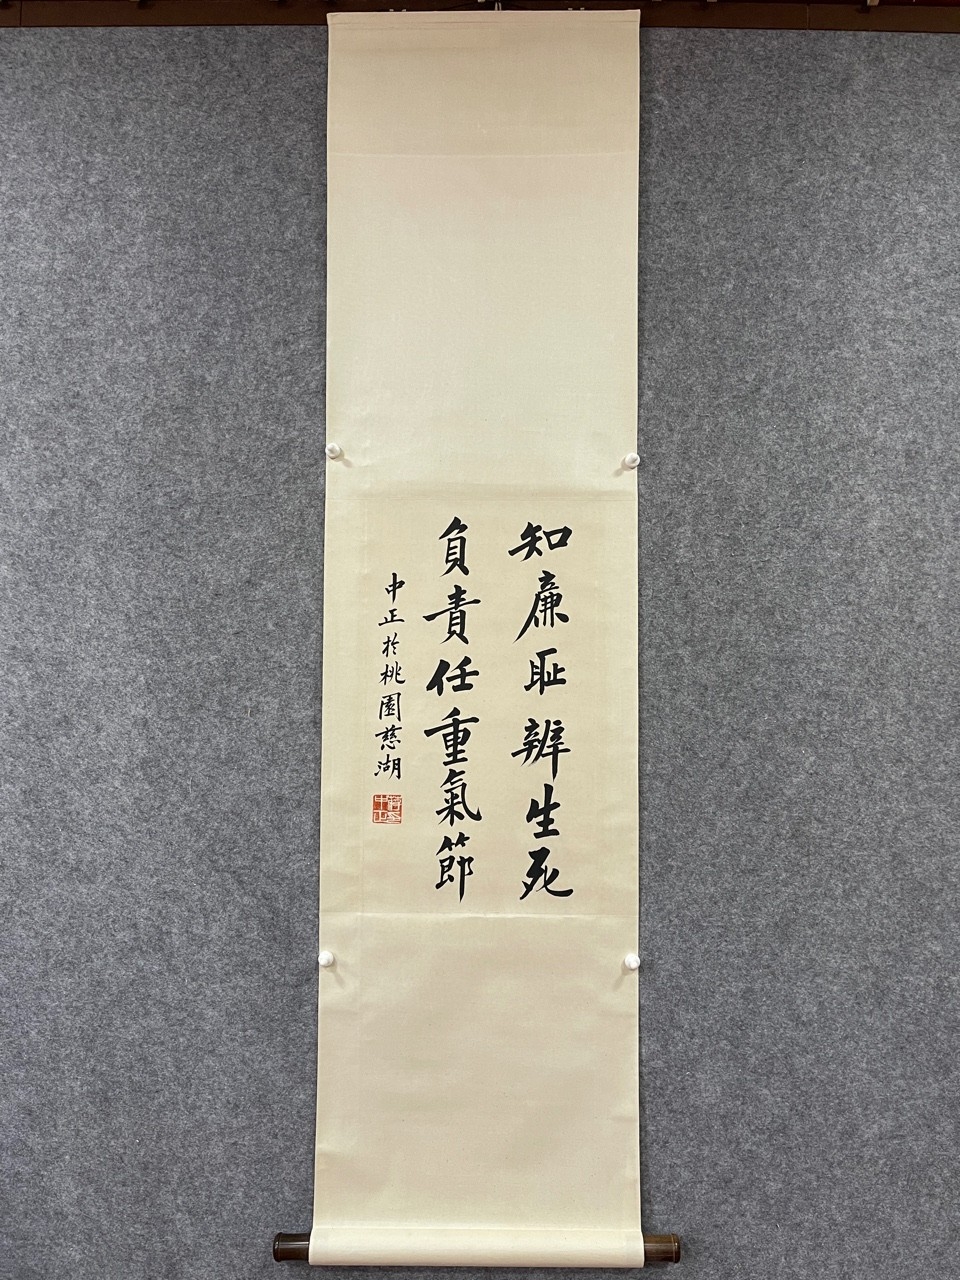 知廉恥辨生死
負責任重氣節
中正於桃園慈湖
蔣中正印